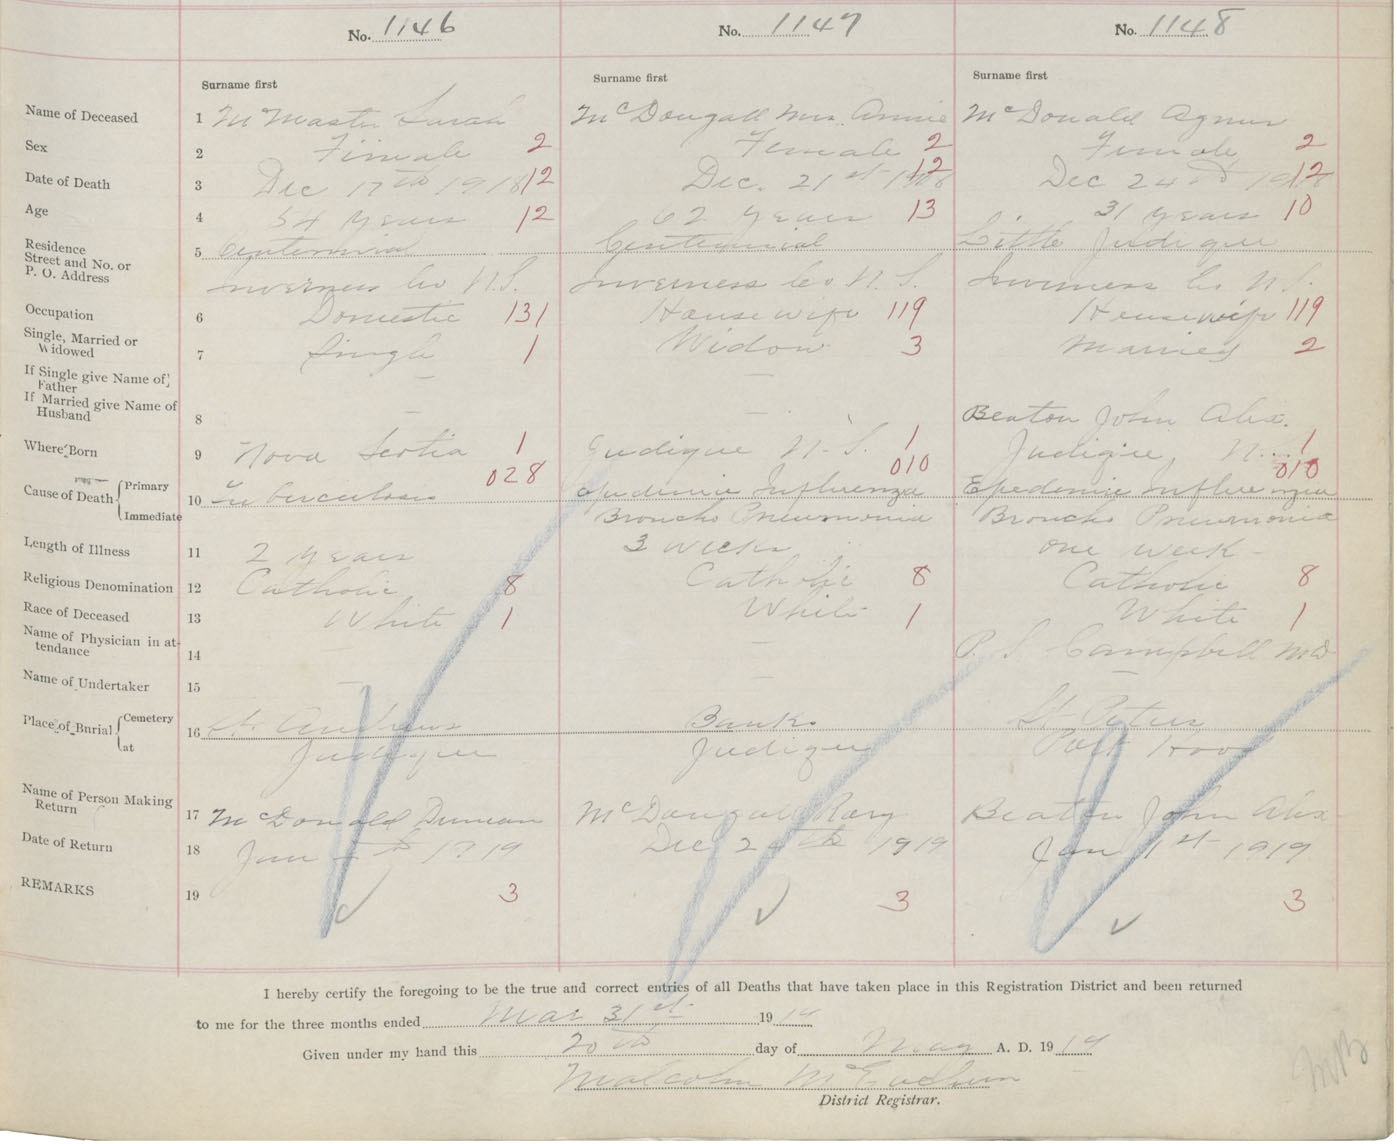 No. 1146
No. 1147
No. 1148
Surname first
Surname first
Surname first
Name of Deceased 1 McMaster Sarah
McDougall Mrs. Annie
McDonald Agnes
Sex 2 Female 2
Female 2
Female 2
Date of Death 3 Dec 17th 1918 12
Dec. 21st 1918 12
Dec 24th 1918 12
Age 4 54 years 12
62 years 13
31 years 10
Residence
Street and No. or
P. O. Address
5 Centennial
Centennial
Little Judique
Inverness Co N.S.
Inverness Co N.S.
Inverness Co N.S.
Occupation 6 Domestic 131
Housewife 119
Housewife 119
Single, Married or
Widowed
7 Single 1
Widow 3
Married 2
If Single give Name of
Father
—
—
If Married give Name of
Husband
8 —
—
Beaton John Alex.
Where Born 9 Nova Scotia 1
Judique N.S. 1
Judique, N. 1
028
010
010
Cause of Death { Primary
Immediate
10 Tuberculosis
Epidemic Influenza
Epedemic Influenzia
Broncho Pneumonia
Broncho Pneumonia
Length of Illness 11 2 years
3 weeks
one week -
Religious Denomination 12 Catholic 8
Catholic 8
Catholic 8
Race of Deceased 13 White 1
White 1
White 1
Name of Physician in at-
tendance
14 —
—
P. S. Campbell MD
Name of Undertaker 15 —
—
—
Place of Burial { Cemetery
at
16 St. Andrews
Banks
St Peters
Judique
Judique
Port Hood
Name of Person Making
Return
17 McDonald Duncan
McDougall Rory
Beaton John Alex
Date of Return 18 Jan 1919
Dec 24th 1919
Jan 1st 1919
REMARKS 19 3
3
3
I hereby certify the foregoing to be the true and correct entries of all Deaths that have taken place in this Registration District and been returned
to me for the three months ended Mar 31st 1919
Given under my hand this 20th day of May A. D. 1919
Malcolm
District Registrar.